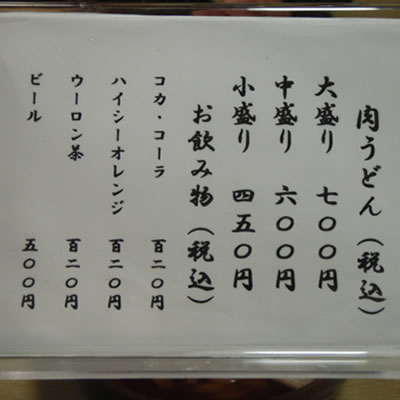 肉うどん(税込)
大盛り 七〇〇円
中盛り 六〇〇円
小盛り 四五〇円
お飲み物(税込)
コカ・コーラ 百二〇円
ハイシーオレンジ 百二〇円
ウーロン茶 百二〇円
ビール 五〇〇円